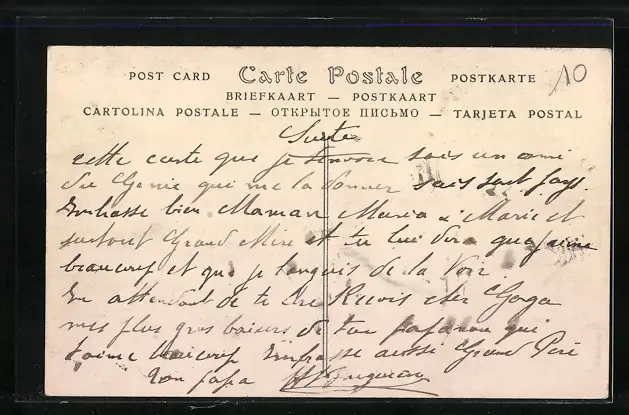 POST CARD Carte Postale POSTKARTE
10
BRIEFKAART — POSTKAART
CARTOLINA POSTALE — ОТКРЫТОЕ ПИСЬМО — TARJETA POSTAL
Suite
cette carte que je t'envoie sais un ami
du Genie qui me la donner sais sont pays.
Embrasse bien Maman Maria et Marie et
surtout Grand Mere et tu lui dira que j'aime
beaucoup et que je languis de la voir
En attendant de te lire Recois cher Goga
mes plus gros baisers de ton papanou qui
t'aime beaucoup Embrasse aussi Grand Père
Ton papa